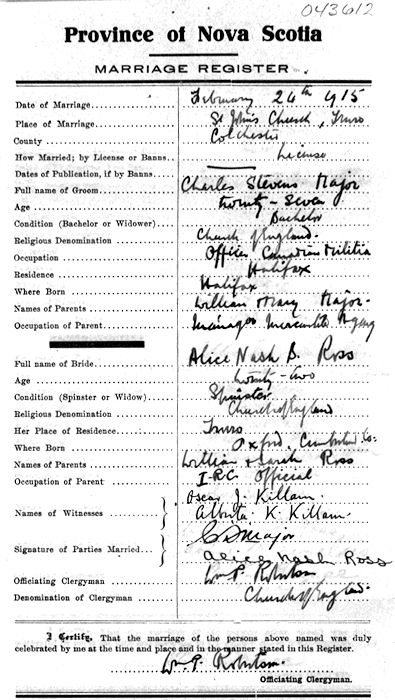 043612
Province of Nova Scotia
MARRIAGE REGISTER
Date of Marriage.................... February 24th 1915
Place of Marriage.................... St John's Church, Truro
County .................... Colchester
How Married; by License or Banns.. License
Dates of Publication, if by Banns....
Full name of Groom.................... Charles Stevens Major
Age .................... twenty-seven
Condition (Bachelor or Widower).... Bachelor
Religious Denomination .................... Church of England.
Occupation .................... Officer Canadian Militia
Residence .................... Halifax
Where Born .................... Halifax
Names of Parents.................... William Mary Major.
Occupation of Parent.................... Manager Mercantile Agency
Full name of Bride.................... Alice Nash B. Ross
Age .................... twenty-two
Condition (Spinster or Widow)........ Spinster
Religious Denomination .................... Church of England
Her Place of Residence.................... Truro
Where Born .................... Oxford, Cumberland Co.
Names of Parents .................... William & Sarah Ross
Occupation of Parent .................... I.R.C. Official
Names of Witnesses .......... } Oscar J. Killam.
Alberta K. Killam.
Signature of Parties Married... } CS Major
Alice Nash Ross
Officiating Clergyman .................... Wm P. Robertson
Denomination of Clergyman .......... Church of England.
I Certify, That the marriage of the persons above named was duly
celebrated by me at the time and place and in the manner stated in this Register.
Wm P. Robertson.
Officiating Clergyman.